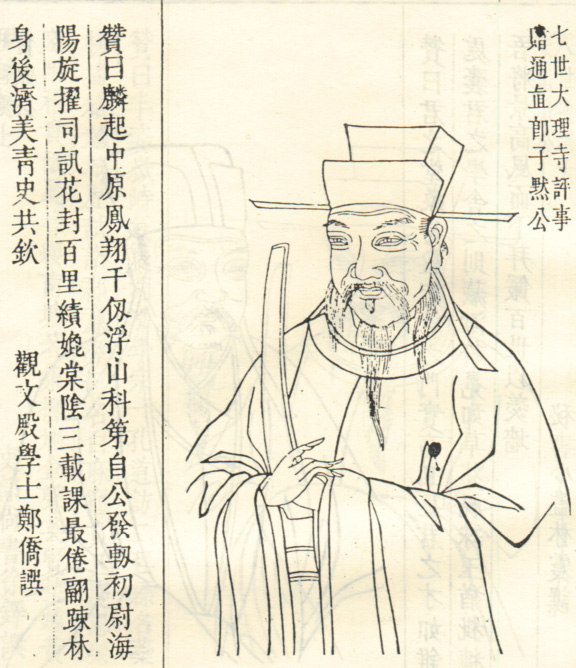 七世大理寺評事
贈通直郎子默公
贊曰麟起中原鳳翔千仭浮山科第自公發軔初尉海
陽旋擢司訊花封百里績媲棠陰三載課最倦翮踈林
身後濟美青史共欽 觀文殿學士鄭僑譔